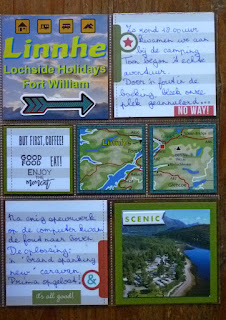 Linnhe
Lochside Holidays
Fort William
Zo rond 10 vuur
kwamen we aan
bij de camping.
Toen begon 't echte
avontuur.
Door 'n fout in de
boeking bleek onze
plek geannuleerd...
NO WAY!
BUT FIRST, COFFEE!
GOOD FOOD EAT!
ENJOY
the
moment
Na enig speurwerk
op de computer kwam
de fout naar boven.
De oplossing:
'n "brand spanking
new" caravan.
Prima opgelost!
&
it's all good!
SCENIC